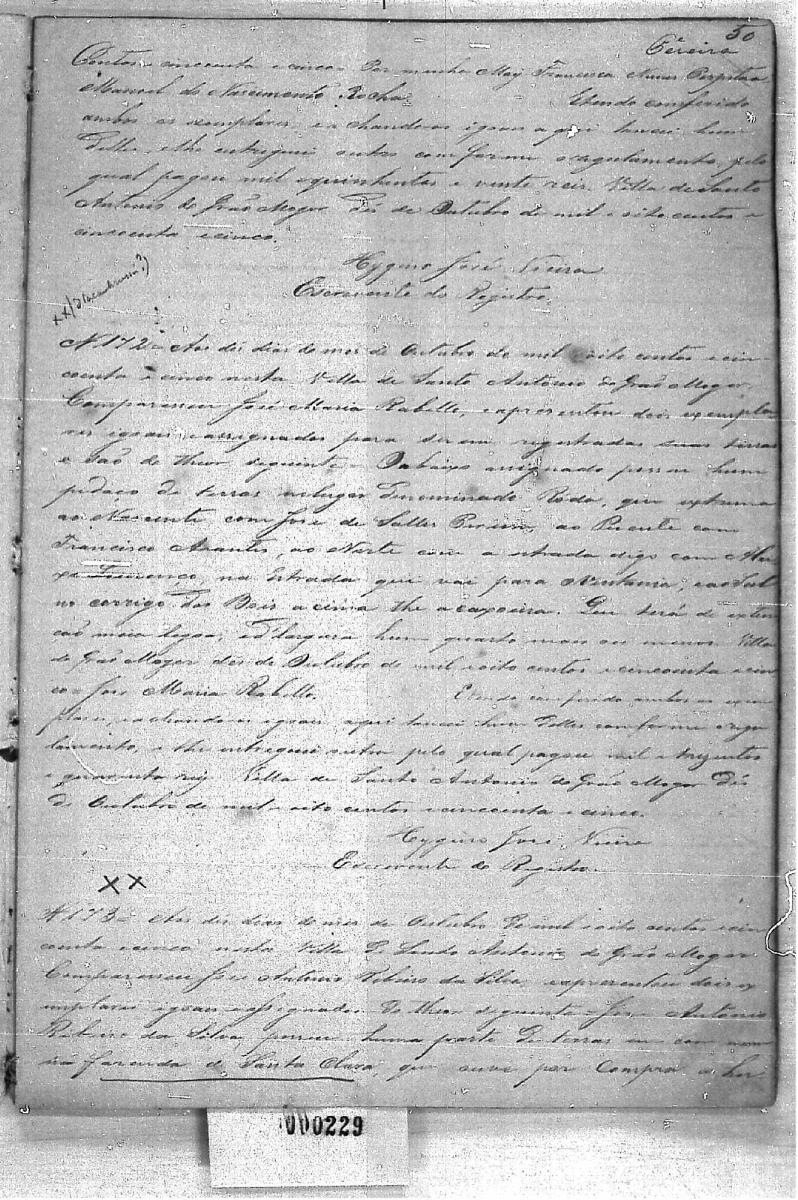 50
Pereira
Centos e cincoenta e cinco. Por minha May Francisca Nunes Perpetua
Manoel do Nascimento Rocha. Etendo comferido
ambos os exemplares, e achandoos iguaes aqui lancei hum
delles, e lhe entreguei outro comforme o regulamento, pelo
qual pagou mil e quinhentos e vinte reis. Villa de Santo
Antonio do Grão Mogor dés de Outubro de mil e oito centos e
cincoenta e cinco.
Hygino José Vieira
Escrevente do Registro.
N. 172 - Aos dés dias do mes de Outubro de mil e oito centos e cin-
coenta e cinco nesta Villa de Santo Antonio do Grão Mogor,
Compareceu José Maria Rabello, e apresentou dois exempla-
res iguaes e assignados para serem registradas suas terras
e são do theor seguinte - O abaixo assignado possue hum
pedaço de terras no lugar denominado Roda, que extrema
ao Nascente com José de Salles Pereira, ao Poente com
Francisco Arantes, ao Norte com a estrada digo com
Lourenço, na Estrada que vai para Ventania, e ao Sul
no corrigo dos Bois a cima the a capoeira. Que terá de exten-
ção meia legoa, e d'largura hum quarto mais ou menos. Villa
do Grão Mogor dés de Outubro de mil e oito centos e cincoenta e cin-
co - José Maria Rabello. Etendo comferido ambos os exem-
plares, e achandoos iguaes aqui lancei hum delles comforme o regu-
lamento, e lhe entreguei outro pelo qual pagou mil e trezentos
e quarenta reis. Villa de Santo Antonio do Grão Mogor dés
de Outubro de mil e oito centos e cincoenta e cinco.
Hygino José Vieira
Escrevente do Registro.
XX
N. 173 - Aos dés dias do mes de Outubro de mil e oito centos e cin-
coenta e cinco nesta Villa de Santo Antonio do Grão Mogor
Compareceu José Antonio Ribeiro da Silva, e apresentou dois ex-
emplares iguaes e assignados do theor seguinte - José Antônio
Ribeiro da Silva, possue huma parte de terras em com mum
na fazenda de Santa Clara, que ouve por Compra a her
000229